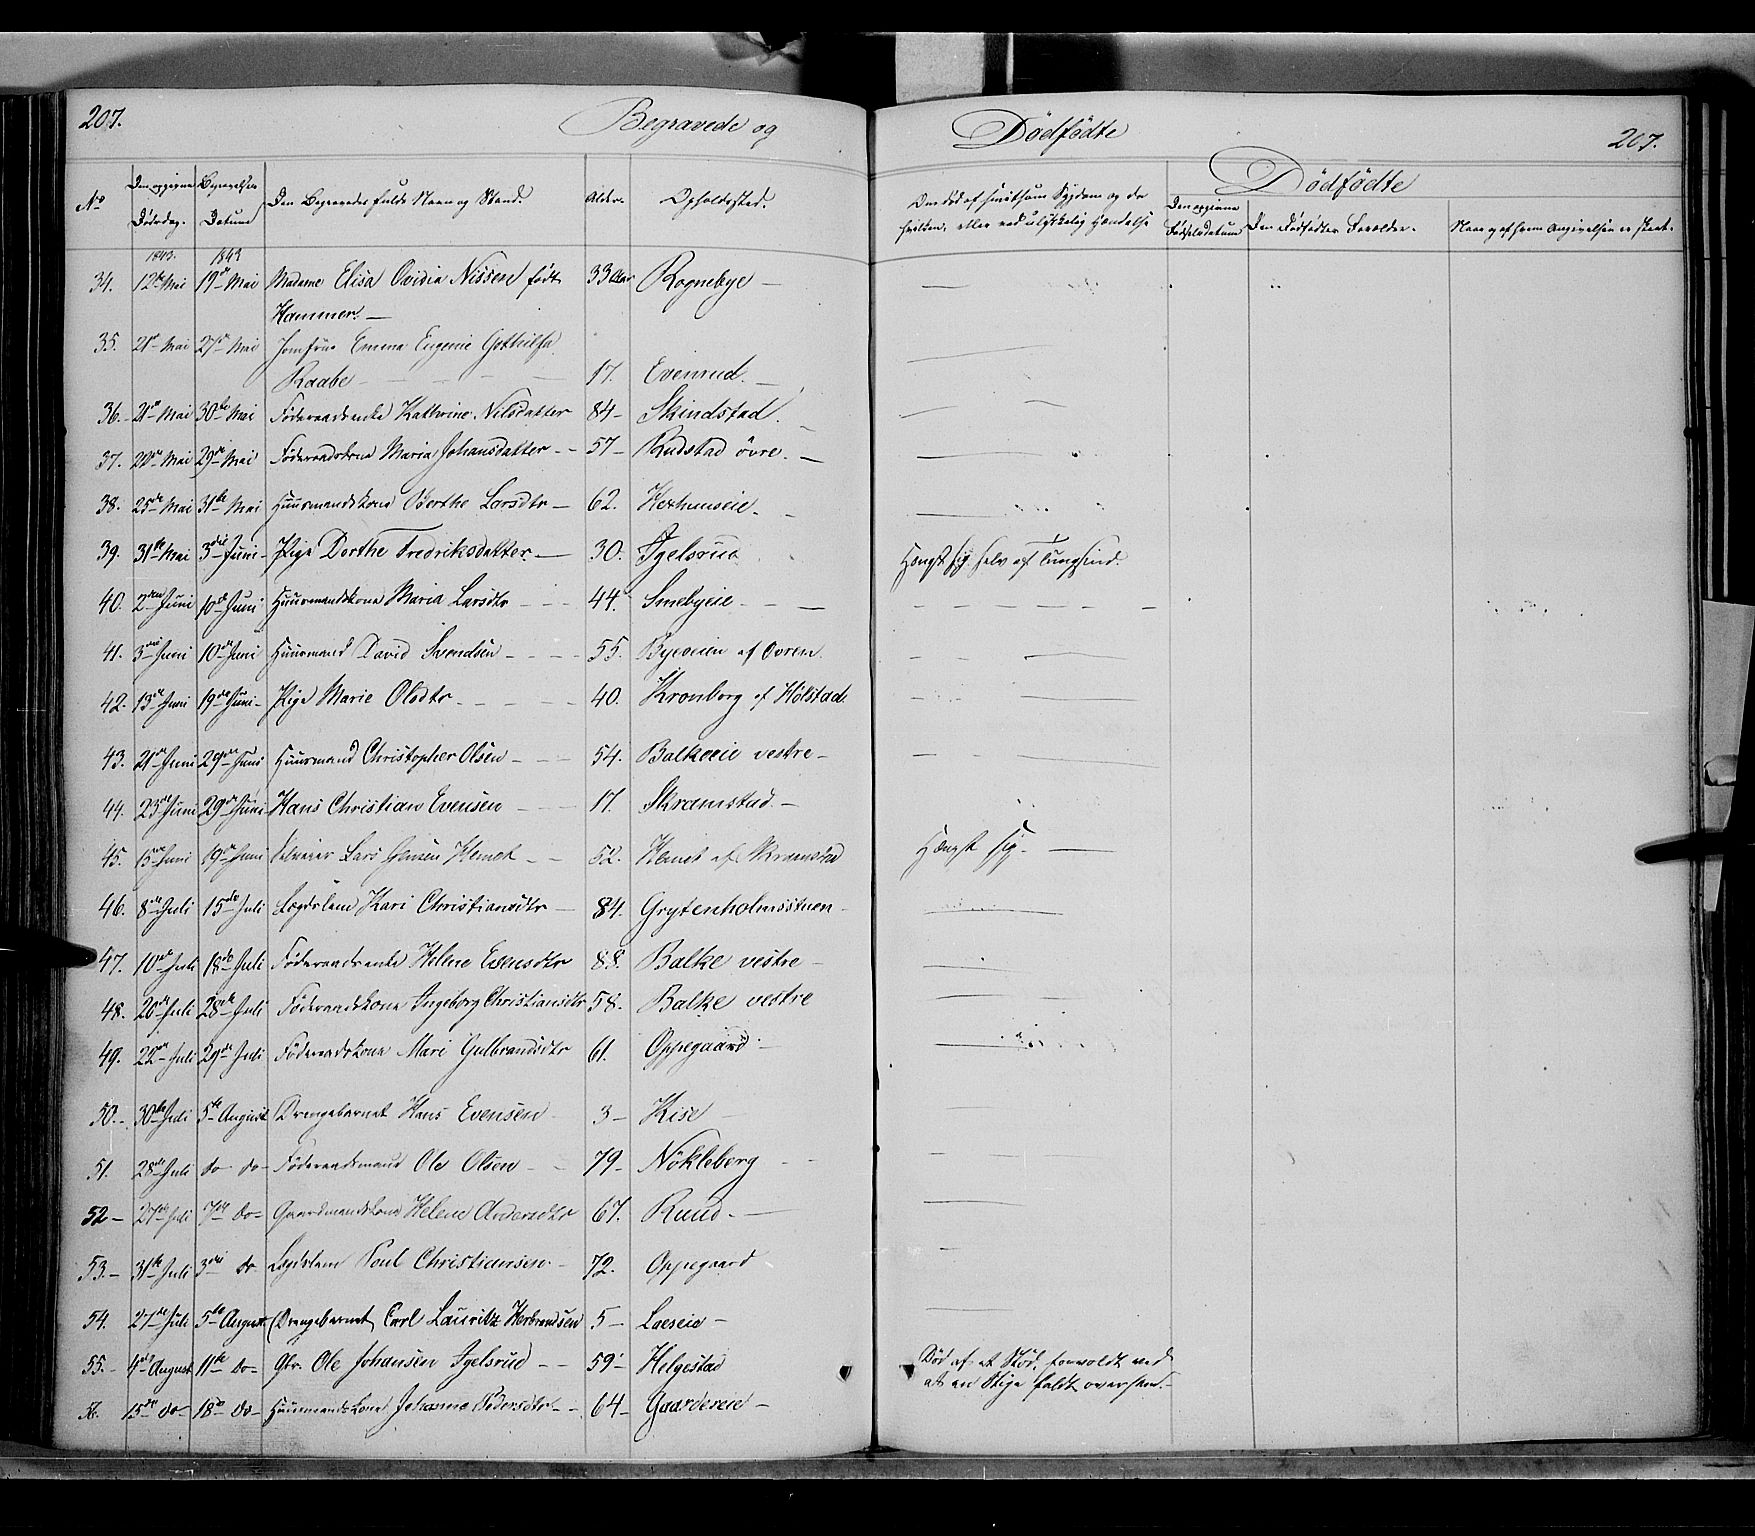 207.
Begravede og
Dødfødte
207.
Dødfødte
No
Den opgivne Dødsdag.
Begravelses Datum
Den Begravedes fulde Navn og Stand.
Alder.
Opholdssted.
Om død af smitsom Sygdom og da hvilken, eller ved ulykkelig Hændelse
Den opgivne Fødselsdatum
Den Dødfødtes Forældre.
Naar og af hvem Angivelsen er skeet.
1843. 1843
34. 12te Mai 19de Mai Madame Elisa Ovidia Nissen født 33 Aar Rognebye —
Hammer. —
35. 21de Mai 27de Mai Jomfrue Emma Eugenie Gothilfa
Raabe — 17. Evenrud. —
36. 21de Mai 30te Mai Føderaadsenke Kathrine Nilsdatter 84 — Skindstad.
37. 22de Mai 29de Mai Føderaadskone Maria Johansdatter — 57 — Rudstad övre. —
38. 25de Mai 31te Mai Huusmandskone Berthe Larsdtr — 62. Hexhuuseie —
39. 31te Mai 3die Juni — Pige Dorthe Fredriksdatter — 30. Igelsrud Hængt sig selv af Tungsind.
40. 2den Juni 10de Juni Huusmandskone Maria Larsdtr — 44. Smebyeie —
41. 3die Juni 10de Juni Huusmand David Svendsen — 55. Byeveien af Ovren.
42. 13de Juni 19de Juni — Pige Marie Olsdtr — 40. Kronborg af Hölstad.
43. 21de Juni 29de Juni Huusmand Christopher Olsen — 54. Balkeeie vestre —
44. 23de Juni 29de Juni Hans Christian Evensen — 17. Skramstad —
45. 15de Juni 19de Juni Selveier Lars Jensen Hemet — 52. Hemet af Skramstad Hængt sig. —
46. 8de Juli 15de Juli Lægdslem Kari Christiansdtr — 84. Grytenholmsstuen —
47. 10de Juli 18de Juli Føderaadsenke Helene Evensdtr 88. Balke vestre —
48. 20de Juli 28de Juli Føderaadskone Ingeborg Christiansdtr 58. Balke vestre
49. 22de Juli 29de Juli Føderaadskone Mari Gulbrandsdtr 61. Oppegaard —
50. — 30te Juli 5te August Drengebarnet Hans Evensen 3 — Kise —
51. 28de Juli do — do — Føderaadsmand Ole Olsen — 79 — Nökleberg —
52 — 27de Juli 7de do — Gaardmandskone Helene Andersdtr 67. Ruud. —
53. — 31te Juli 3die do Lægdslem Poul Christiansen — 72. Oppegaard
54. 27de Juli 5te August Drengebarnet Carl Lauritz Herbrandsen 5 — Laeseie —
55. — 4de August 11te do — Gbr. Ole Johansen Igelsrud — 59 — Helgestad Død af et Stød, forvoldt ved
at en Stige faldt over ham. —
56. 15de do — 18de do — Huusmandskone Johanne Pedersdtr — 64 — Gaardereie —